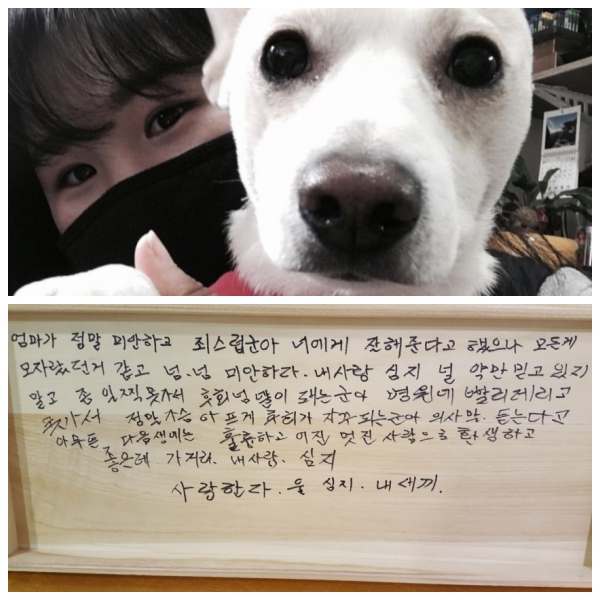 엄마가 정말 미안하고 죄스럽군아 너에게 잔해준다고 했으나 모든게
모자랐던거 같고 넘.넘 미안하다. 내사랑 심지 널 약만 믿고 있지
말고 좀 일찍 못가서 후회넘 많이 돼는군아 병원에 빨리데리고
못가서 정말 가슴 아프게 후회가 자꾸 되는군아 의사말 듣는다고
아무튼 다음생에는 훌륭하고 이진 멋진 사람으로 환생하고
좋은데 가거라. 내사랑. 심지
사랑한다. 울 심지. 내새끼.